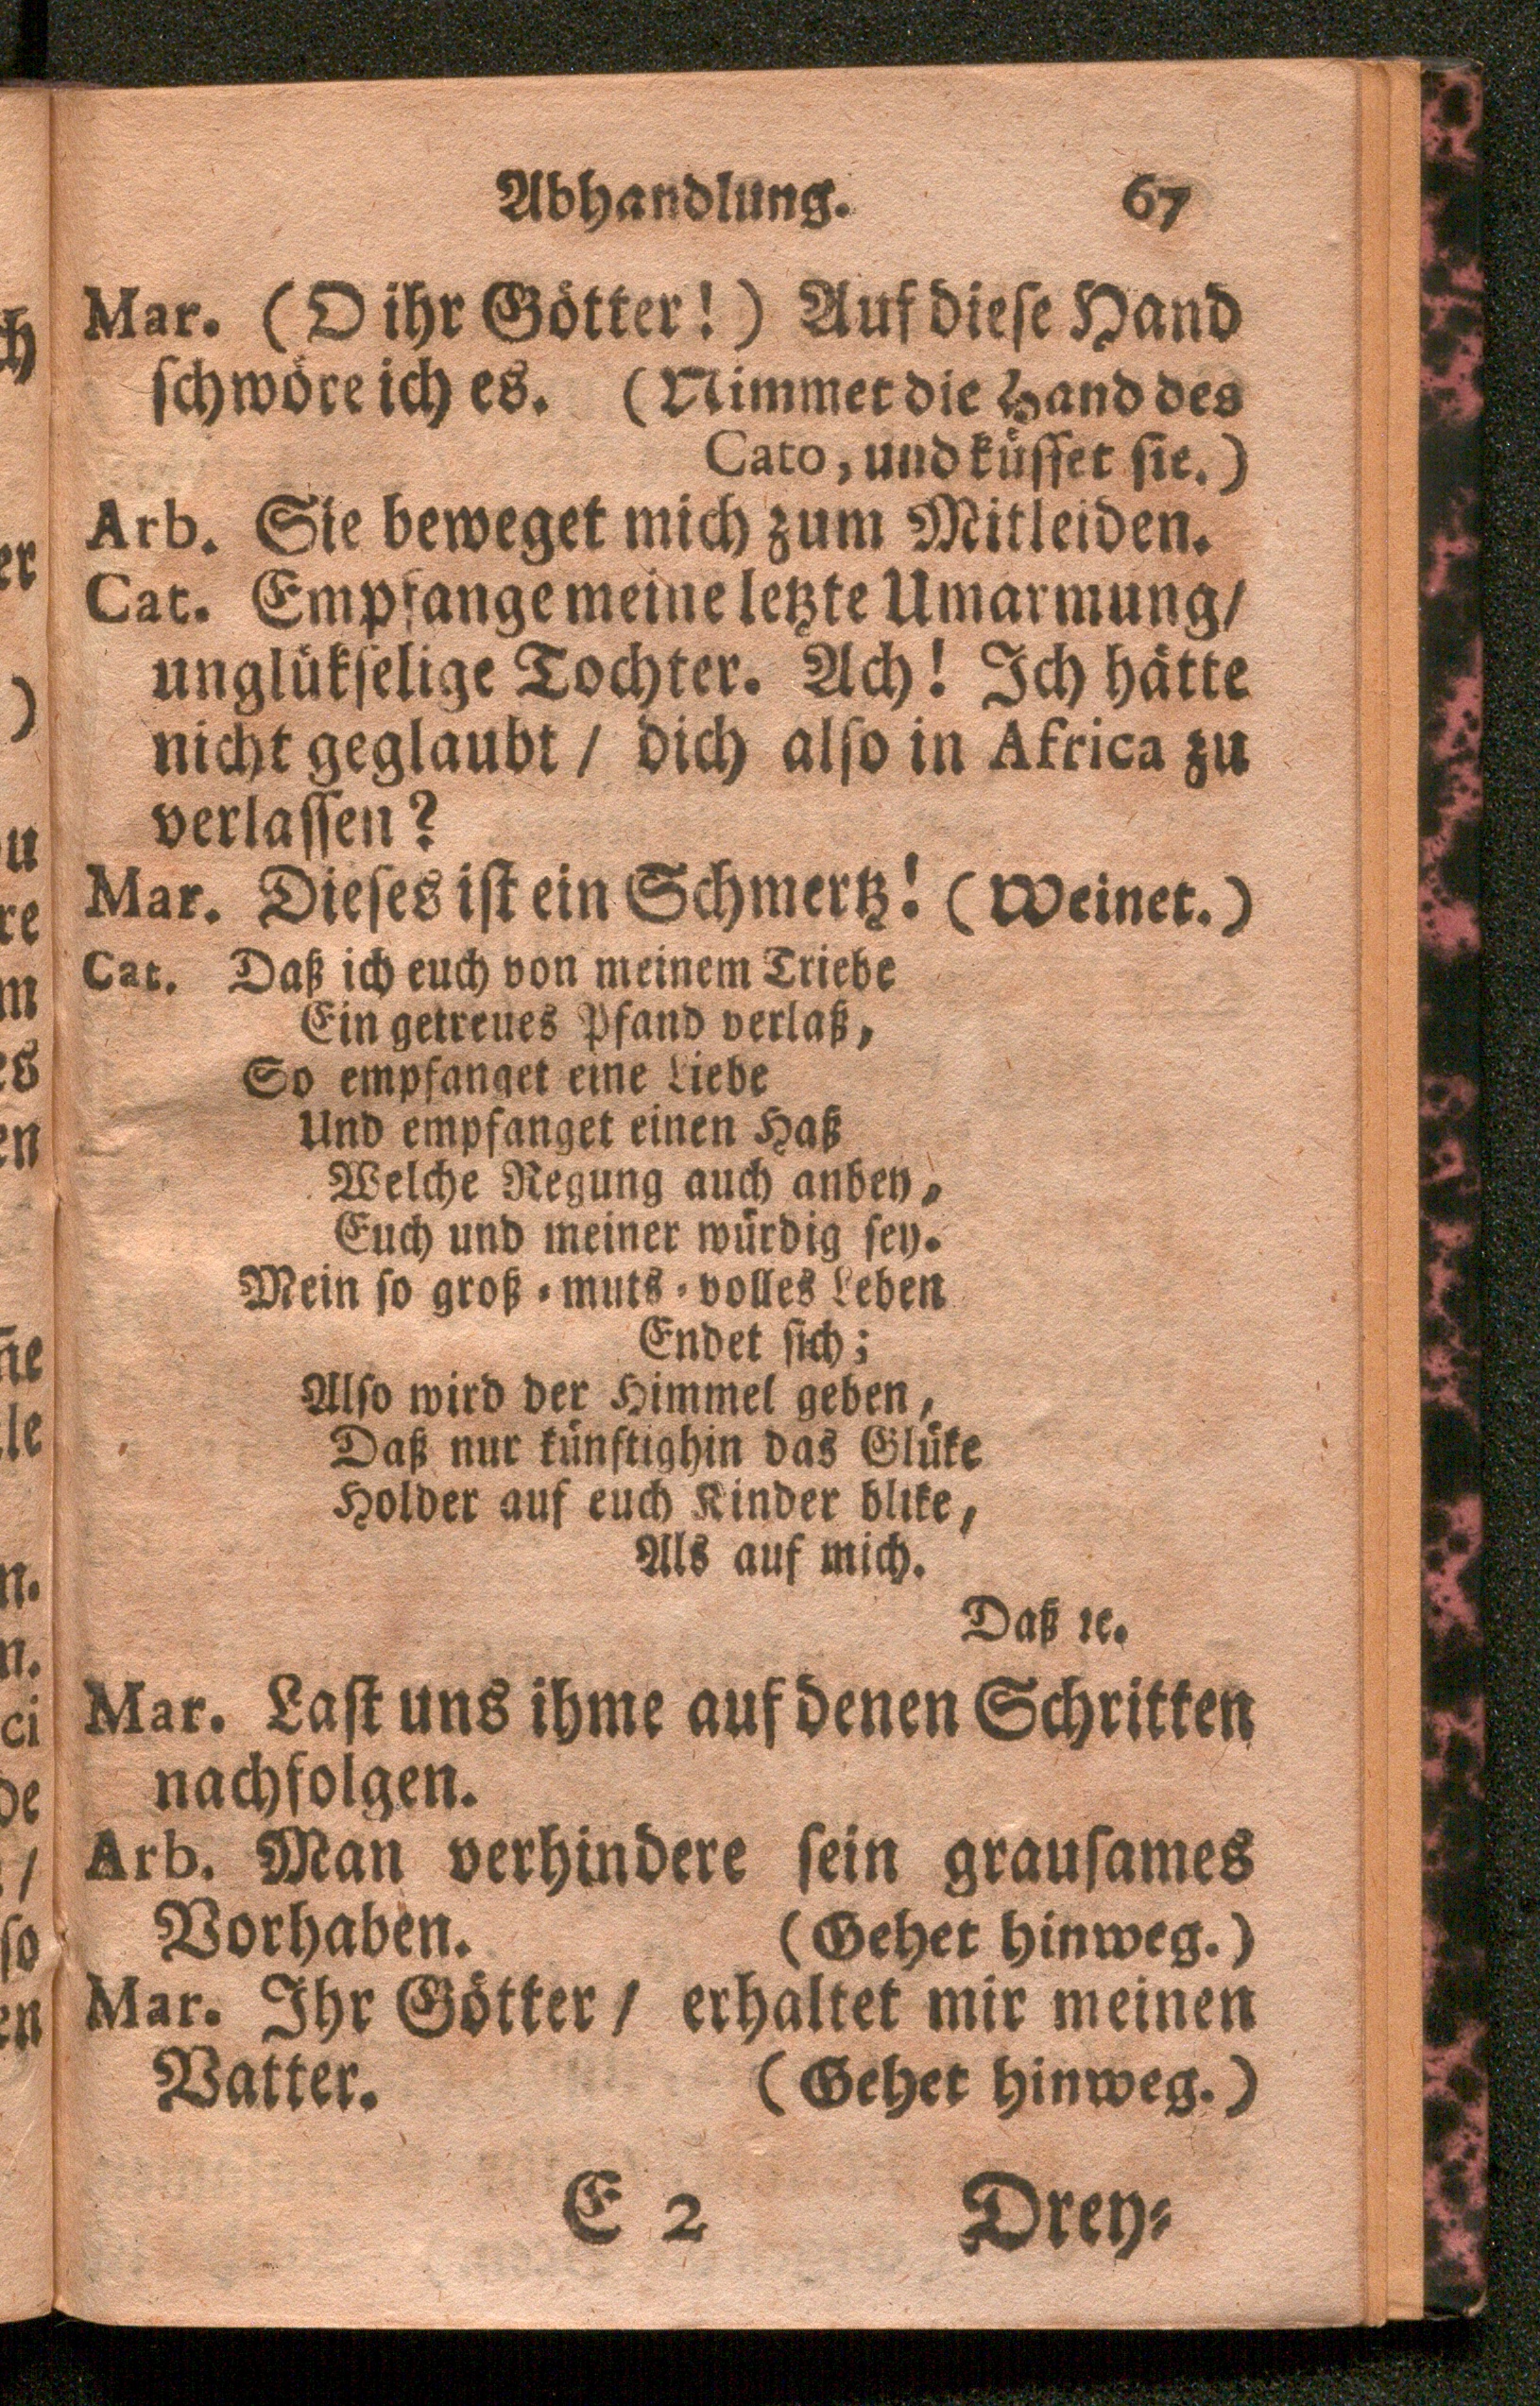 Abhandlung. 67
Mar. (O ihr Götter!) Auf dieſe Hand
ſchwöre ich es. (Nimmet die Hand des
Cato, und küſſet ſie.)
Arb. Sie beweget mich zum Mitleiden.
Cat. Empfange meine letzte Umarmung/
unglükſelige Tochter. Ach! Ich hätte
nicht geglaubt / dich alſo in Africa zu
verlaſſen?
Mar. Dieſes iſt ein Schmertz! (Weinet.)
Cat. Daß ich euch von meinem Triebe
Ein getreues Pfand verlaß,
So empfanget eine Liebe
Und empfanget einen Haß
Welche Regung auch anbey,
Euch und meiner würdig ſey.
Mein ſo groß-muts-volles Leben
Endet ſich;
Alſo wird der Himmel geben,
Daß nur künftighin das Glüke
Holder auf euch Kinder blike,
Als auf mich.
Daß ꝛc.
Mar. Laſt uns ihme auf denen Schritten
nachfolgen.
Arb. Man verhindere ſein grauſames
Vorhaben. (Gehet hinweg.)
Mar. Ihr Götter / erhaltet mir meinen
Vatter. (Gehet hinweg.)
E 2 Drey-